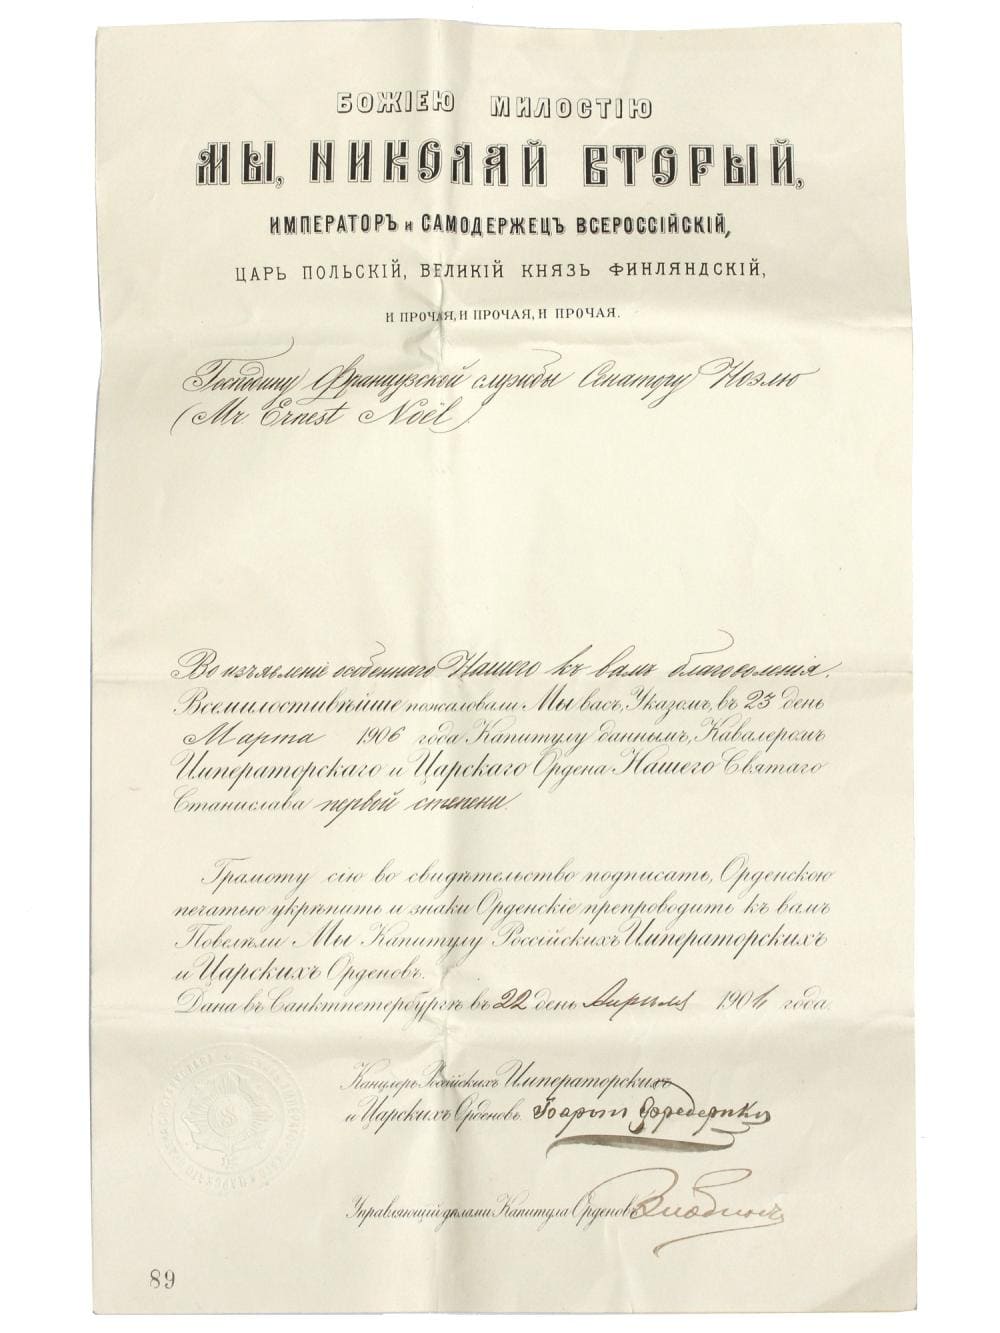 БОЖІЕЮ МИЛОСТІЮ
МЫ, НИКОЛАЙ ВТОРЫЙ,
ИМПЕРАТОРЪ и САМОДЕРЖЕЦЪ ВСЕРОССІЙСКІЙ,
ЦАРЬ ПОЛЬСКІЙ, ВЕЛИКІЙ КНЯЗЬ ФИНЛЯНДСКІЙ,
И ПРОЧАЯ, И ПРОЧАЯ, И ПРОЧАЯ.
Господину Французской службы Сенатору Ноэлю
(Mr. Ernest Noël).
Во изъявленіе особеннаго Нашего къ вамъ благоволенія,
Всемилостивѣйше пожаловали Мы васъ, Указомъ, въ 23 день
Марта 1906 года Капитулу даннымъ, Кавалеромъ
Императорскаго и Царскаго Ордена Нашего Святаго
Станислава первой степени.
Грамоту сію во свидѣтельство подписать, Орденскою
печатью укрѣпить и знаки Орденскіе препроводить къ вамъ
Повелѣли Мы Капитулу Россійскихъ Императорскихъ
и Царскихъ Орденовъ.
Дана въ Санктпетербургѣ въ 22 день Апрѣля 1906 года.
Канцлеръ Россійскихъ Императорскихъ
и Царскихъ Орденовъ Баронъ Фредерикъ
Управляющій дѣлами Капитула Орденовъ
89